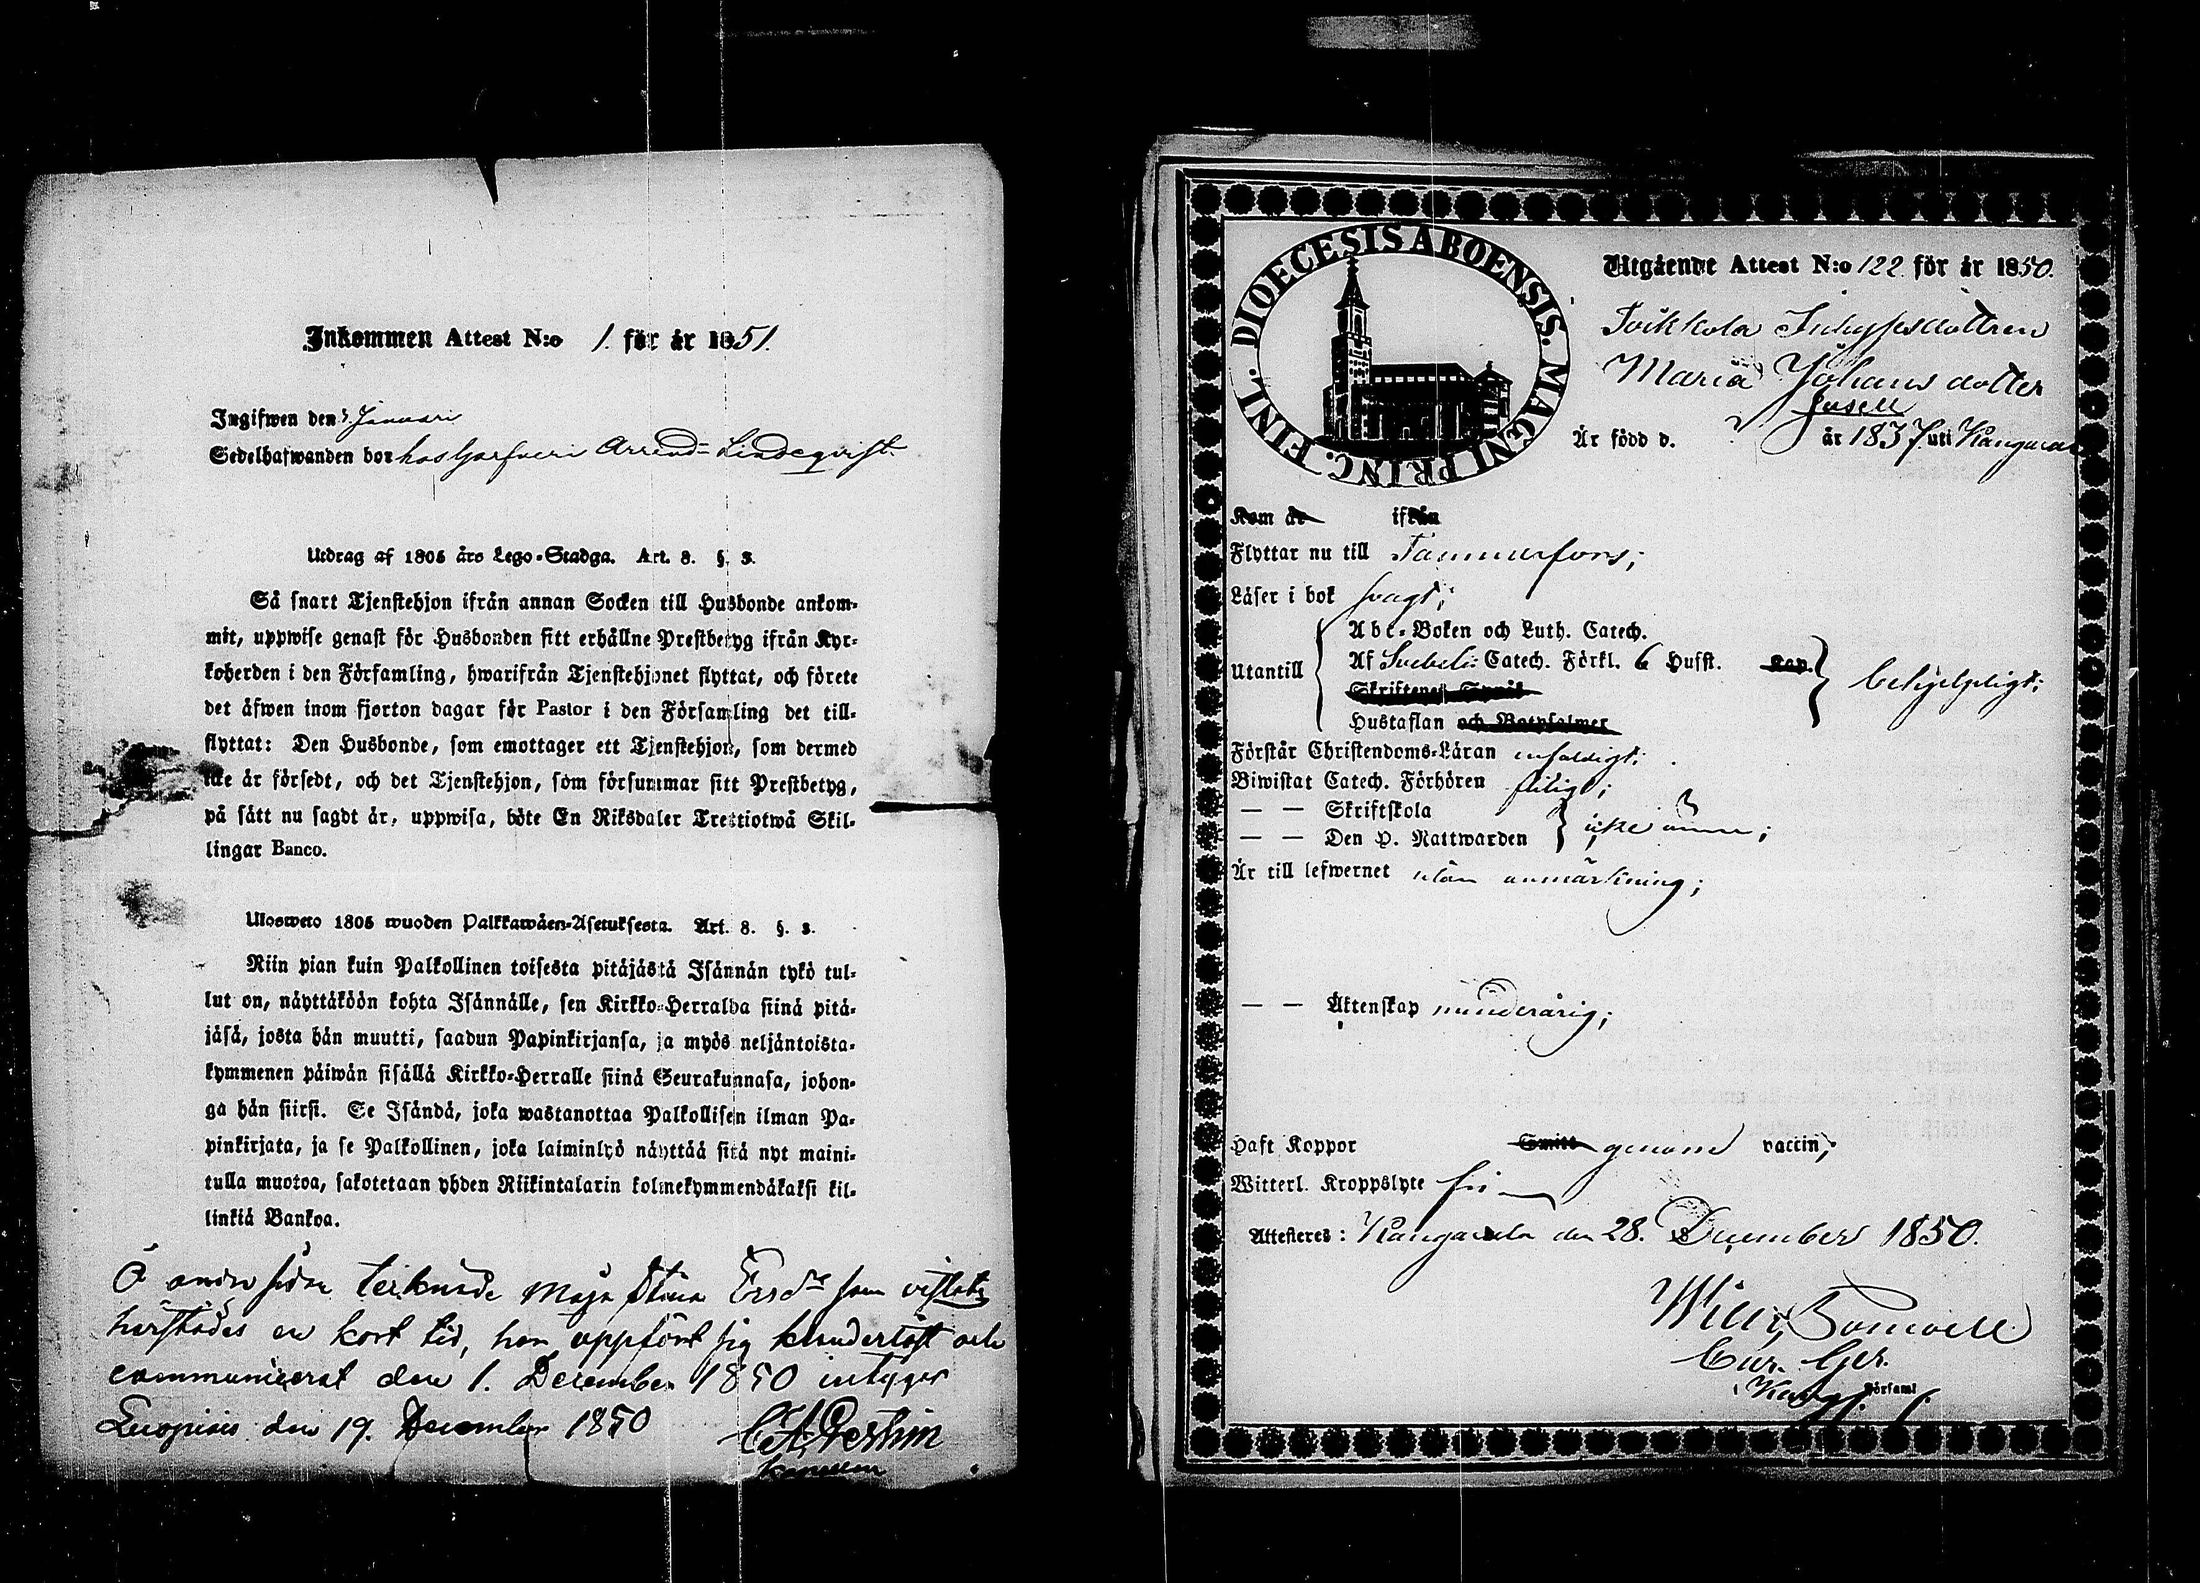 Inkommen Attest N:o 1. för år 1851.
Ingifwen den 5 Januari
Sedelhafwanden bor hos Garfveri Arrend= Lindeqvist
Utdrag af 1805 års Lego-Stadga. Art. 8. §. 3.
Så snart Tjenstehjon ifrån annan Socken till Husbonde ankom-
mit, uppwise genast för Husbonden sitt erhållne Prestbetyg ifrån Kyr-
koherden i den Församling, hwarifrån Tjenstehjonet flyttat, och förete
det äfwen inom fjorton dagar för Pastor i den Församling det till-
flyttat: Den Husbonde, som emottager ett Tjenstehjon, som dermed
icke är försedt, och det Tjenstehjon, som försummar sitt Prestbetyg,
på sätt nu sagdt är, uppwisa, böte En Riksdaler Trettiotwå Skil-
lingar Banco.
Ulosweto 1805 wuoden Palkkawäen-Asetuksesta. Art. 8. §. 3.
Niin pian kuin Palkollinen toisesta pitäjästä Isännän tykö tul-
lut on, näyttäköön kohta Isännälle, sen Kirkko-Herralda siinä pitä-
jäsä, josta hän muutti, saadun Papinkirjansa, ja myös neljäntoista-
kymmenen päiwän sisällä Kirkko-Herralle siinä Seurakunnasa, johon-
ga hän siirsi. Se Isändä, joka wastanottaa Palkollisen ilman Pa-
pinkirjata, ja se Palkollinen, joka laiminlyö näyttää sitä nyt maini-
tulla muotoa, sakotetaan yhden Riikintalarin kolmekymmendäkaksi kil-
linkiä Bankoa.
Å andra sidan tecknade Maja Stina Ersdr som vistats
härstädes en kort tid, har uppfört sig klanderlöst och
communicerat den 1. December 1850 intygar
Luopiois den 19. December 1850
DIOECESIS ABOENSIS. MAGNI PRINC. FINL.
Utgående Attest N:o 122 för år 1850.
Inhysesdottren
Maria Johansdotter
Är född d. ? år 1837 uti Kangasala
Kom år ifrån
Flyttar nu till Tammerfors;
Läser i bok svagt;
Abc-Boken och Luth. Catech.
Utantill Af Svebeli: Catech. Förkl. 6 Hufst. Kap. behjelpligt;
Skriftenes Språk
Hustaflan och Botpsalmer
Förstår Christendoms-Läran enfaldigt;
Biwistat Catech. Förhören flitigt;
— — Skriftskola
— — Den H. Nattwarden icke ännu;
Är till lefwernet utan anmärkning;
— — Äktenskap minderårig;
Haft Koppor Smitt genom vaccin;
Witterl. Kroppslyte fri
Attesteres: Kangasala den 28. December 1850.
Församl.